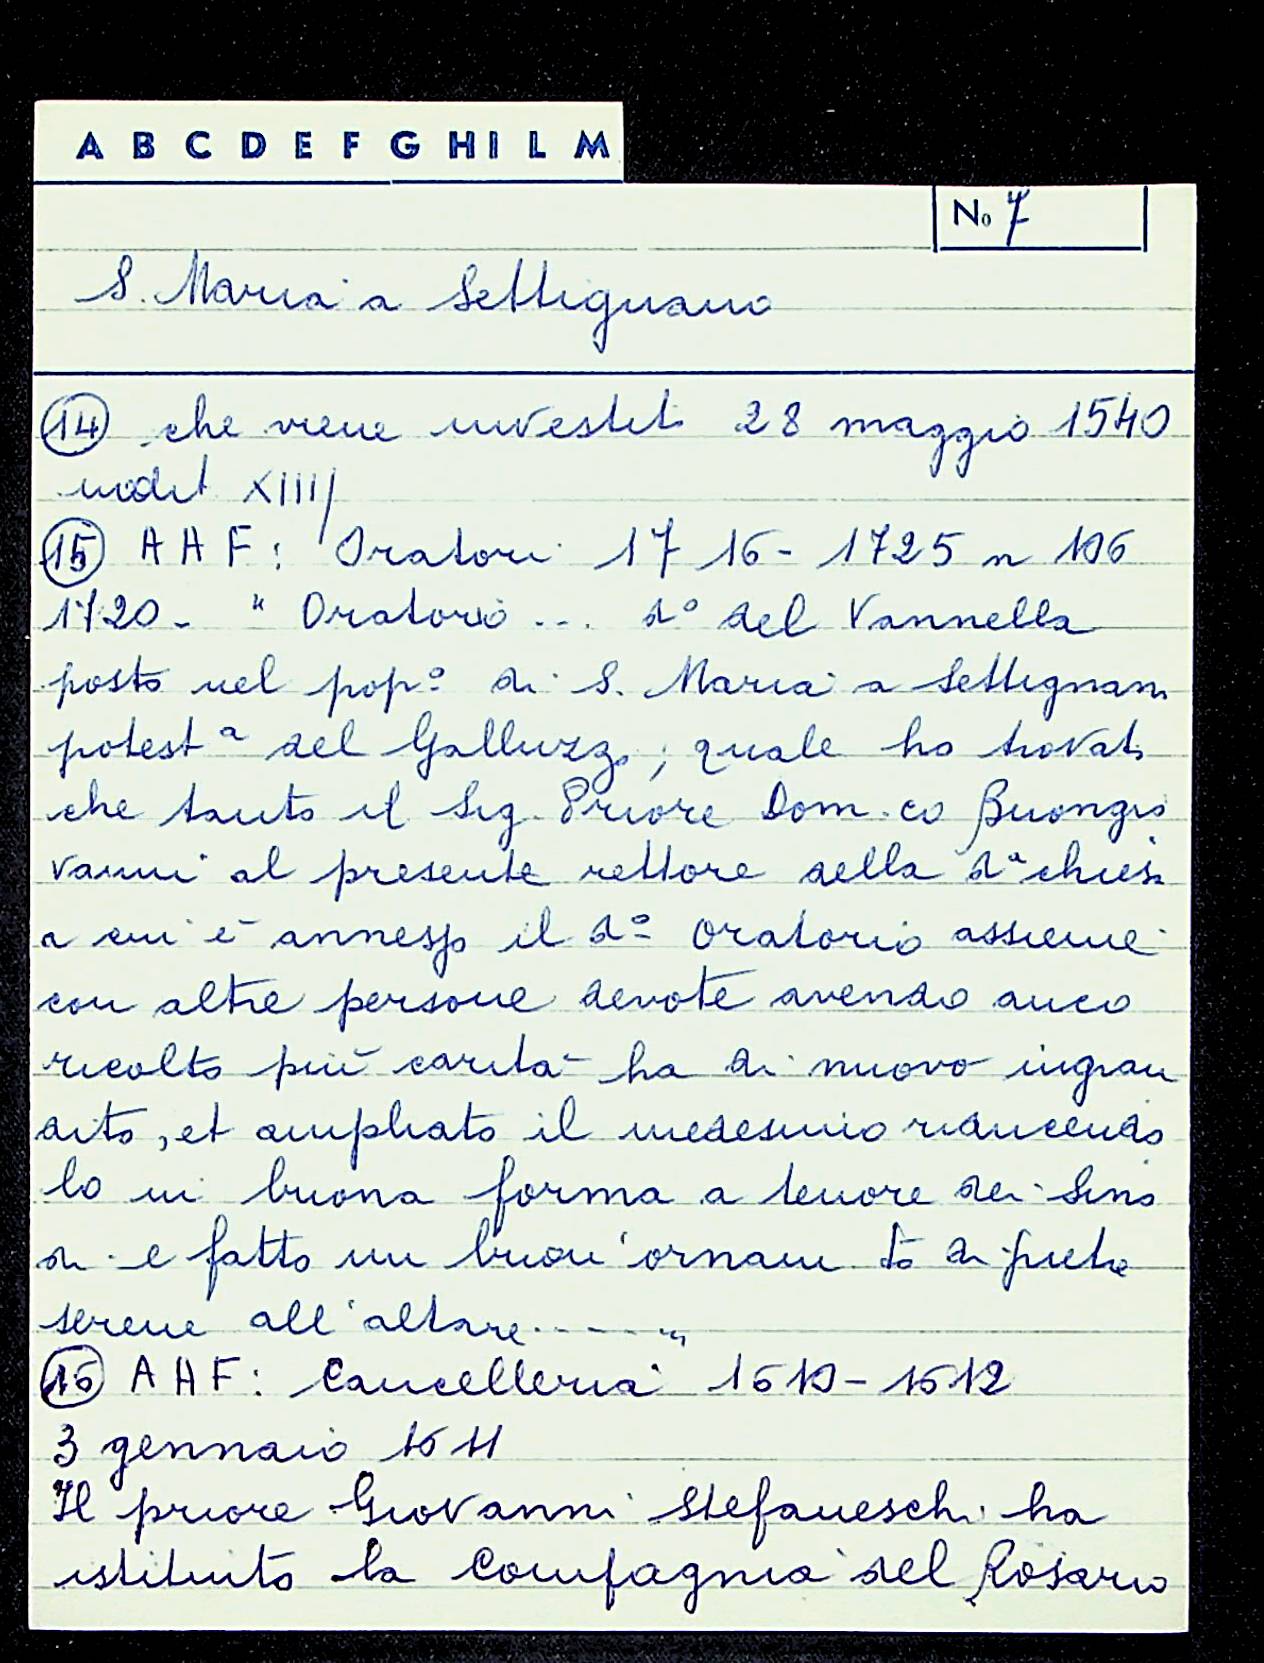 A B C D E F G H I L M
No 7
S. Maria a Settignano
14 che viene investito 28 maggio 1540
indit XIIII
15 AHF: Oratori 1716-1725 n 106
1720- " Oratorio ... do del Vannella
posto nel popo di S. Maria a Settignano
potesta del Galluzzo, quale ho trovato
che tanto il Sig. Priore Dom.co Buongio
vanni al presente rettore della da chiesa
a cui è annesso il do oratorio assieme
con altre persone devote avendo anco
ricolto più carità ha di nuovo ingran
dito, et ampliato il medesimo riducendo
lo in buona forma a tenore dei Sino
di e fatto un buon'ornam to di pietre
serene all'altare....."
16 AHF: Cancelleria 1610-1612
3 gennaio 1611
Il priore Giovanni Stefaneschi ha
istituito la Compagnia del Rosario